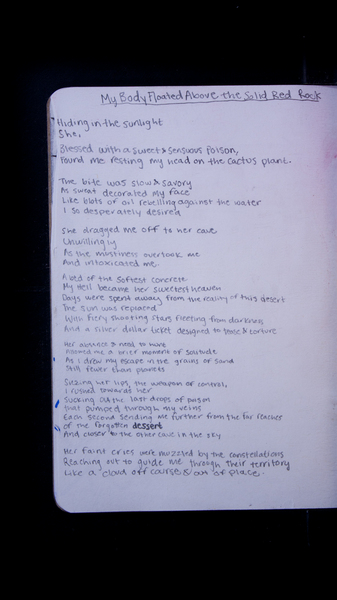 My Body Floated Above the Solid Red Rock
Hiding in the sunlight
She,
Blessed with a sweet & sensuous poison,
Found me resting my head on the cactus plant.
The bite was slow & savory
As sweat decorated my face
Like blots of oil rebelling against the water
I so desperately desired
She dragged me off to her cave
Unwillingly
As the mustiness overtook me
And intoxicated me.
A bed of the softest concrete
My Hell became her sweetest heaven
Days were spent away from the reality of this desert
The sun was replaced
With fiery shooting stars fleeting from darkness
And a silver dollar ticket designed to tease & torture
Her absence & need to hunt
me a brief moment of solitude
As I drew my escape in the grains of sand
Still fewer than planets
her lips the weapon of control,
I rushed towards her
Sucking out the last drops of poison
that pumped through my veins
Each second sending me further from the far reaches
of the forgotten dessert
And closer to the other cave in the sky
Her faint cries were muzzled by the constellations
Reaching out to guide me through their territory
Like a cloud off course & out of place.